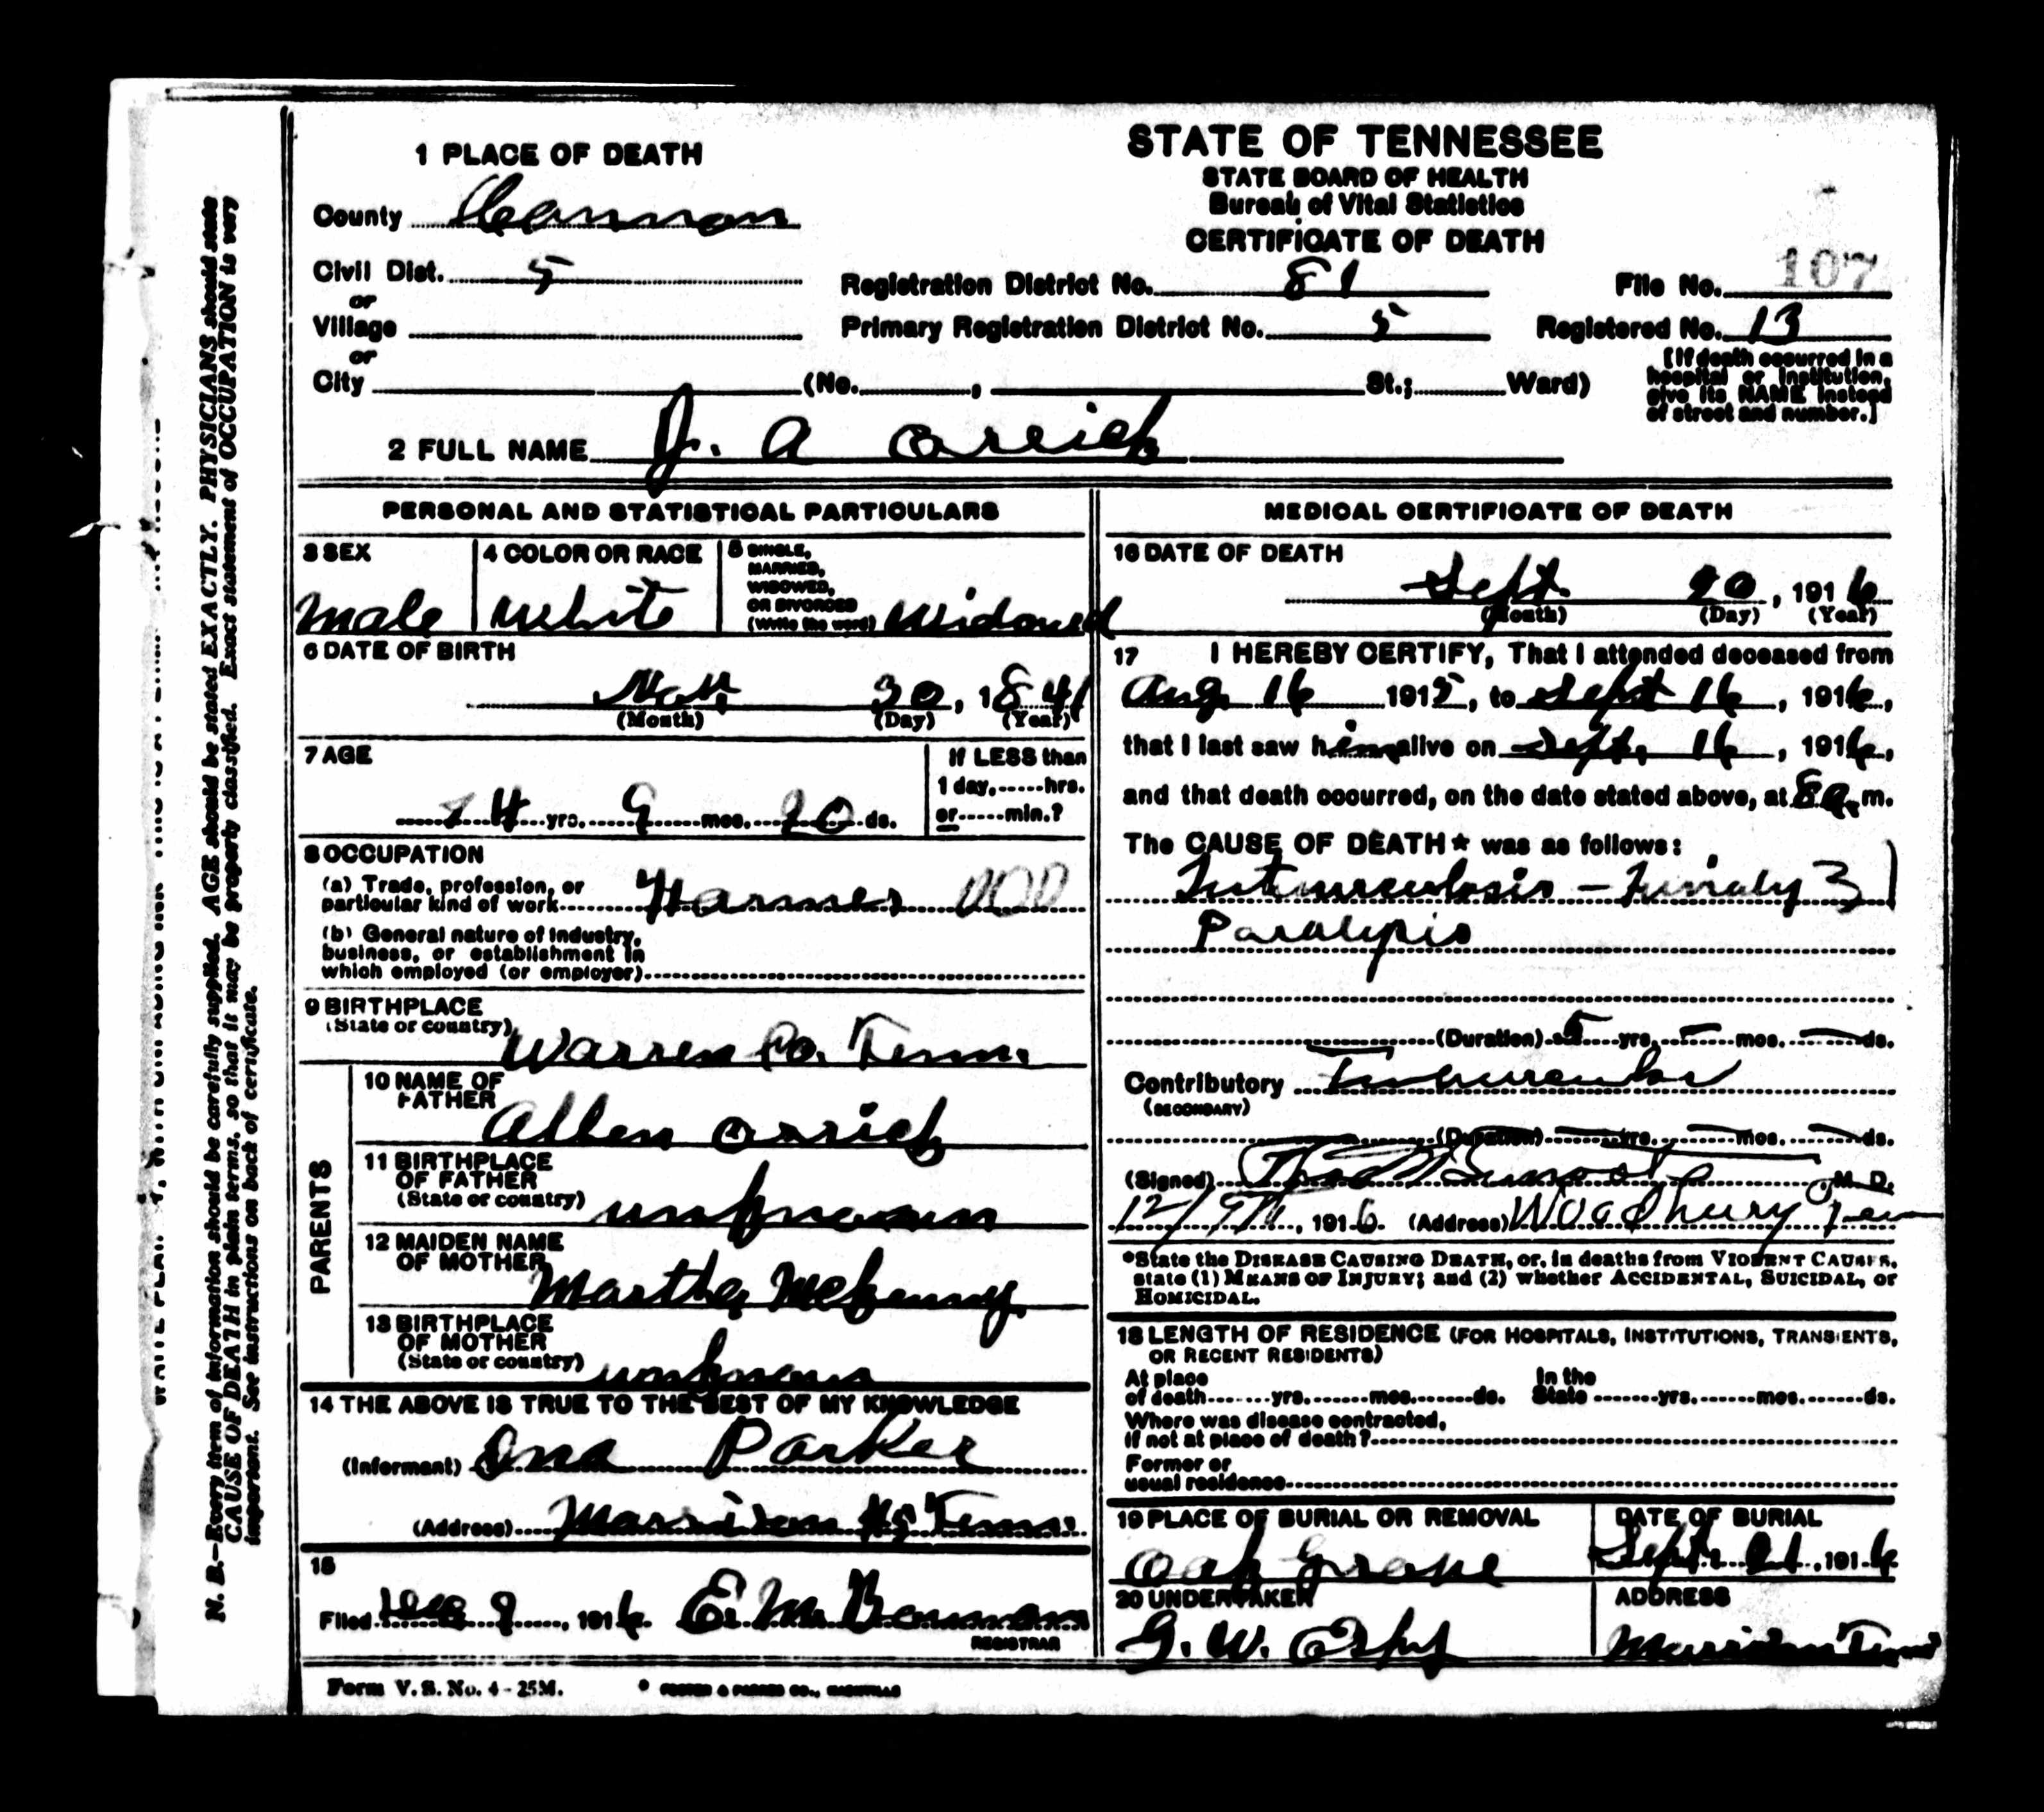 1 PLACE OF DEATH
County Cannon
Civil Dist. 5
or
Village
or
City (No. , St.; Ward)
STATE OF TENNESSEE
STATE BOARD OF HEALTH
Bureau of Vital Statistics
CERTIFICATE OF DEATH
Registration District No. 81
File No. 107
Primary Registration District No. 5
Registered No. 13
[If death occurred in a
hospital or institution,
give its NAME instead
of street and number.]
2 FULL NAME J. A Orrick
PERSONAL AND STATISTICAL PARTICULARS
3 SEX
Male
4 COLOR OR RACE
White
5 SINGLE,
MARRIED,
WIDOWED,
OR DIVORCED
(Write the word) Widowed
6 DATE OF BIRTH
Nov 30, 1841
(Month) (Day) (Year)
7 AGE
74 yrs. 9 mos. 20 ds.
If LESS than
1 day, hrs.
or min.?
8 OCCUPATION
(a) Trade, profession, or
particular kind of work Farmer 000
(b) General nature of industry,
business, or establishment in
which employed (or employer)
9 BIRTHPLACE
(State or country) Warren Co. Tenn.
PARENTS
10 NAME OF
FATHER
Allen Orrick
11 BIRTHPLACE
OF FATHER
(State or country) unknown
12 MAIDEN NAME
OF MOTHER
Martha McKenny
13 BIRTHPLACE
OF MOTHER
(State or country) unknown
14 THE ABOVE IS TRUE TO THE BEST OF MY KNOWLEDGE
(Informant) Ona Parker
(Address) Morrison Tenn.
15
Filed Dec 9, 1916 E. M.
REGISTRAR
Form V. S. No. 4-25M.
FOSTER & PARKES CO., NASHVILLE
MEDICAL CERTIFICATE OF DEATH
16 DATE OF DEATH
Sept 20, 1916
(Month) (Day) (Year)
17 I HEREBY CERTIFY, That I attended deceased from
Aug 16 1915, to Sept 16, 1916,
that I last saw him alive on Sept. 16, 1916,
and that death occurred, on the date stated above, at 8 a. m.
The CAUSE OF DEATH* was as follows:
Paralysis
(Duration) 5 yrs. – mos. – ds.
Contributory
(SECONDARY)
(Duration) yrs. mos. ds.
(Signed) M. D.
12/9th, 1916 (Address) Woodbury Tenn
*State the DISEASE CAUSING DEATH, or, in deaths from VIOLENT CAUSES,
state (1) MEANS OF INJURY; and (2) whether ACCIDENTAL, SUICIDAL, or
HOMICIDAL.
18 LENGTH OF RESIDENCE (FOR HOSPITALS, INSTITUTIONS, TRANSIENTS,
OR RECENT RESIDENTS)
At place
of death yrs. mos. ds.
In the
State yrs. mos. ds.
Where was disease contracted,
if not at place of death?
Former or
usual residence
19 PLACE OF BURIAL OR REMOVAL
Oak Grove
DATE OF BURIAL
Sept. 21, 1916
20 UNDERTAKER
G. W. Espy
ADDRESS
Morrison Tenn
N. B.—Every item of information should be carefully supplied. AGE should be stated EXACTLY. PHYSICIANS should state
CAUSE OF DEATH in plain terms, so that it may be properly classified. Exact statement of OCCUPATION is very
important. See instructions on back of certificate.